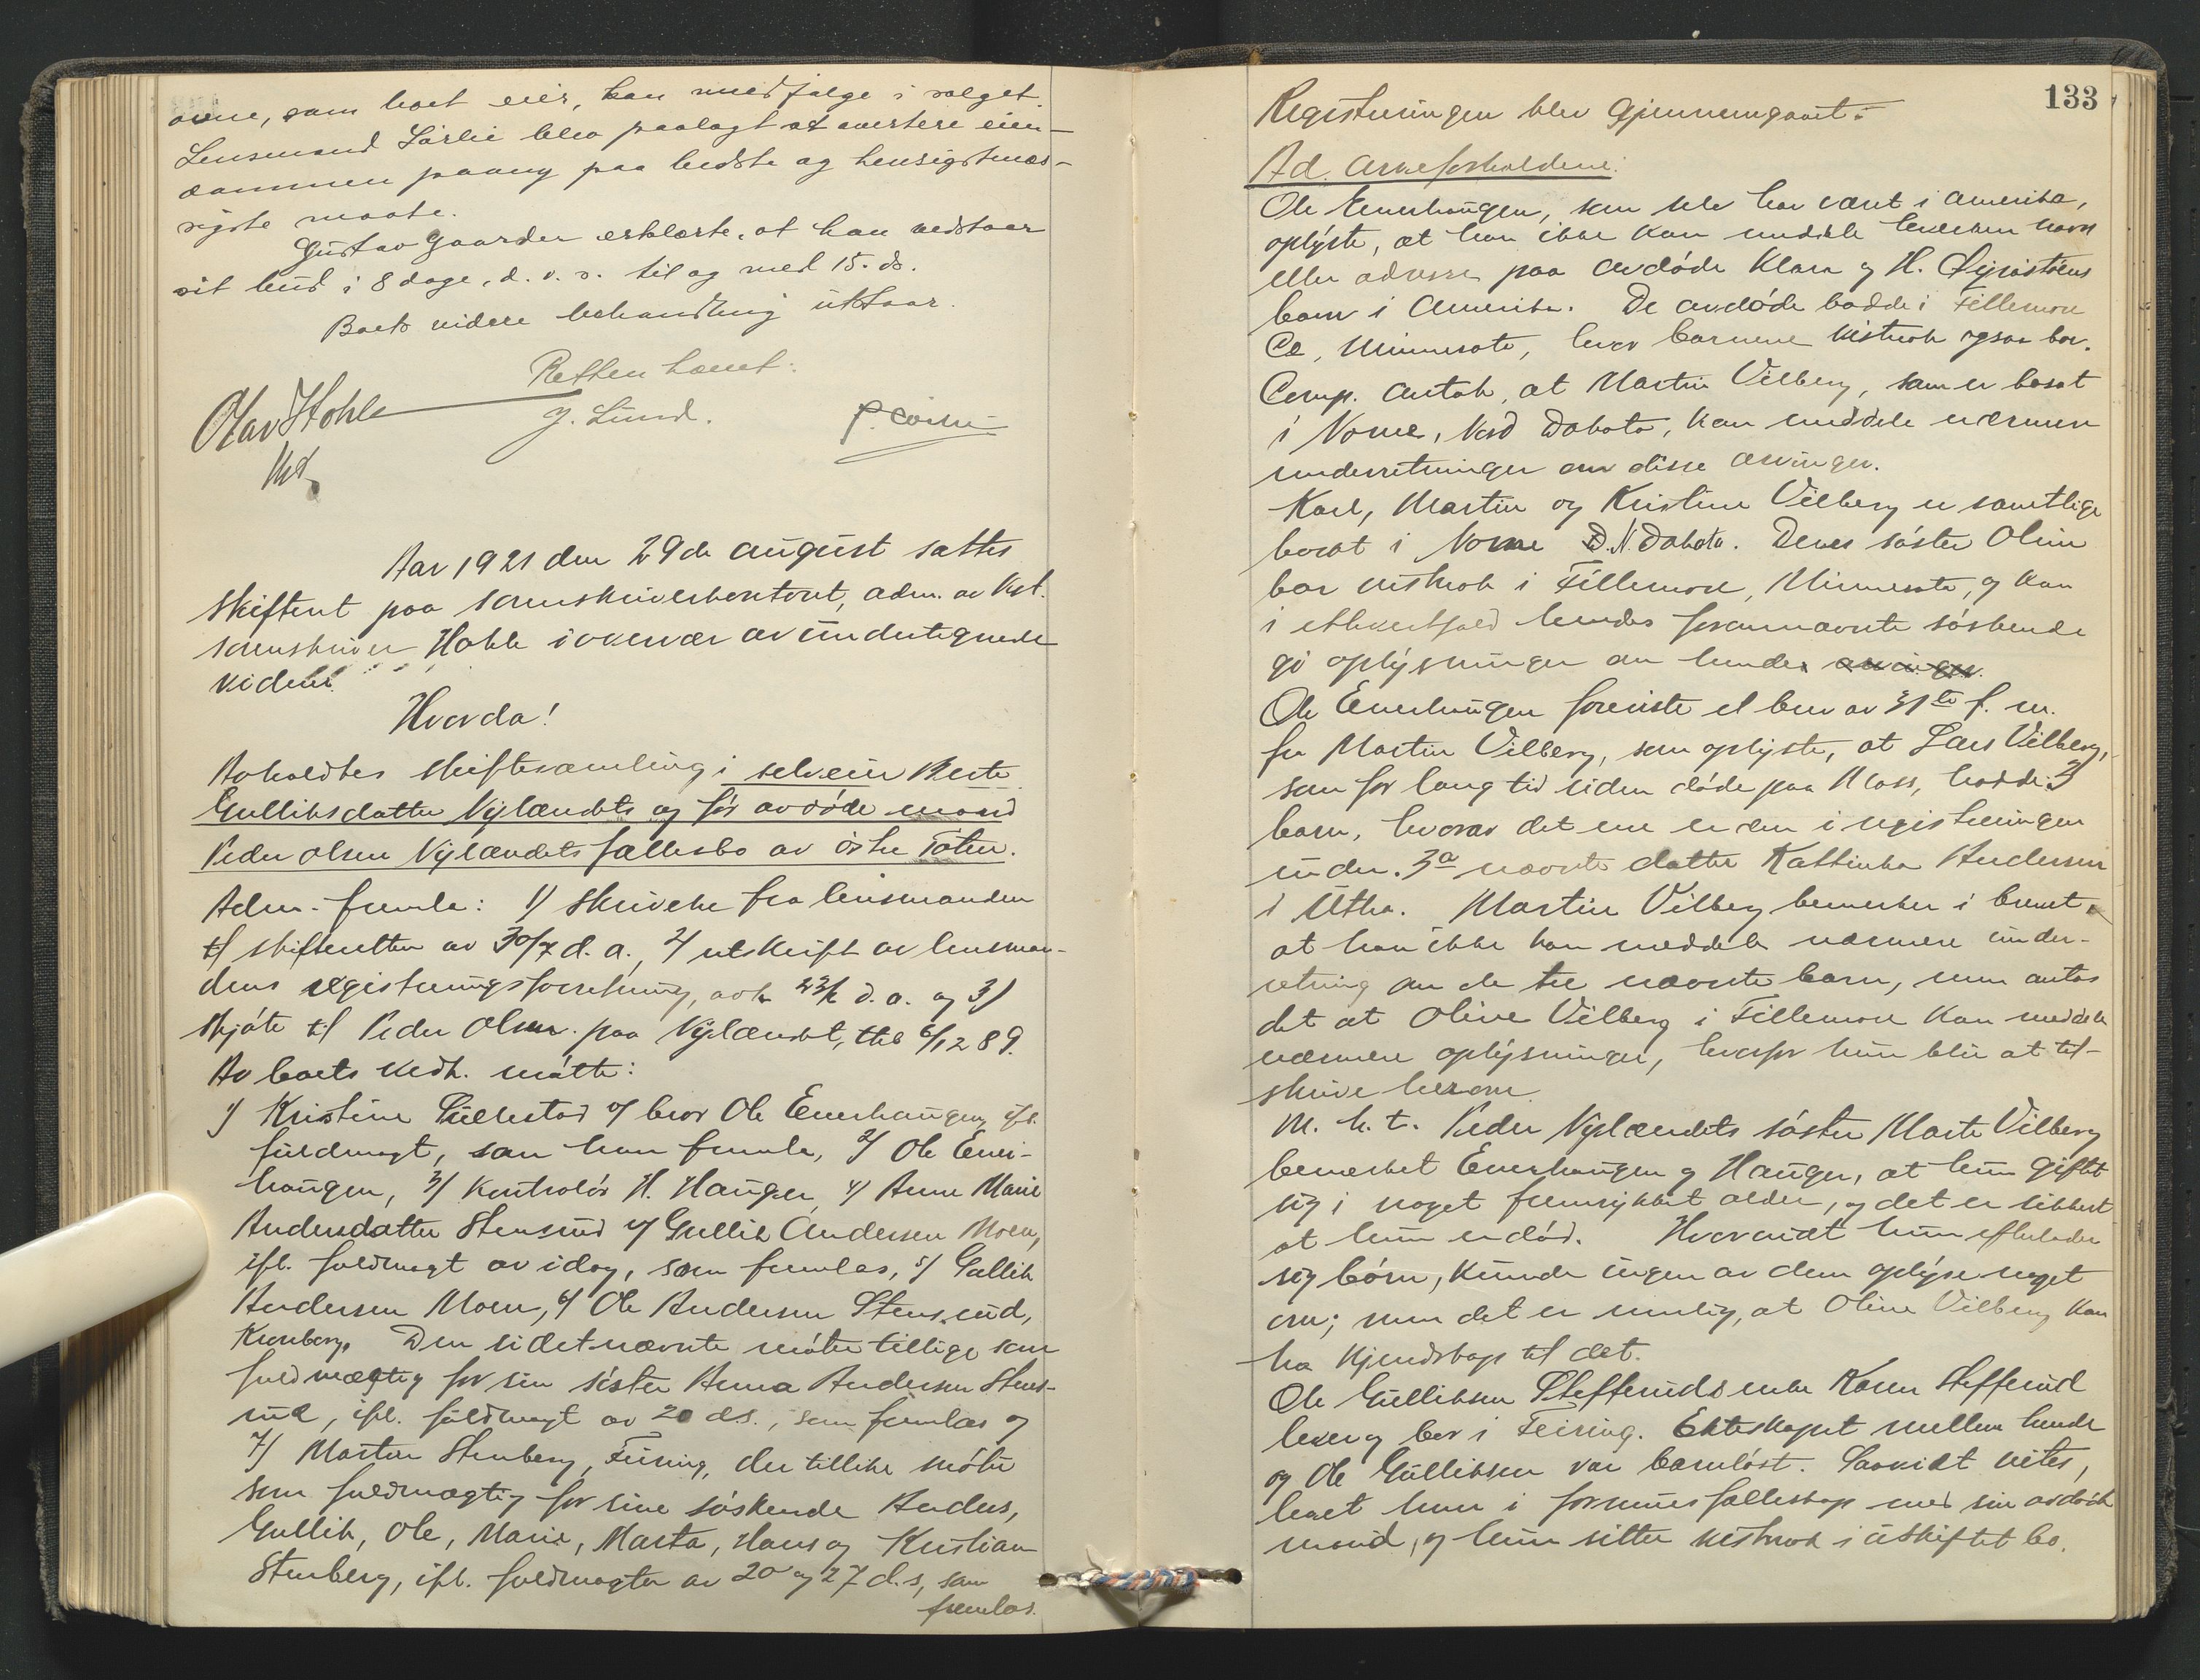 ovne, som boet eier, kan medfølge i salget.
Lensmand Sørlie blev paalagt at avertere eien-
dommen paany paa bedste og hensigtsmæs-
sigste maate.
Gustav Gaarder erklærte, at han vedstaar
sit bud i 8 dage, d. v. s. til og med 15. ds.
Boets videre behandling utstaar.
Retten hævet:
Olav Hohle
J. Lund.
Kst.
Aar 1921 den 29de august sattes
skifteret paa sorenskriverkontoret, adm. av kst.
sorenskriver Hohle i overvær av undertegnede
vidner.
Hvorda!
Avholdtes skiftesamling i selveier Marte
Gulliksdatter Nylændets og før avdøde mand
Peder Olsen Nylændets fællesbo av østre Toten.
Adm. fremla: 1) Skrivelse fra lensmanden
til skifteretten av 30/7 d. a., 2/ utskrift av lensman-
dens registreringsforretning, avh. d. a. og 3)
Skjøte til Peder Olsen paa Nylændet, thl. 6/12 89.
Av boets vedk. møtte:
1) Kristine Sullestad v/ bror Ole Enerhaugen, ifl.
fuldmagt, som han fremla, 2/ Ole Ener-
haugen, 3/ Kontrolør H. Haugen, 4/ Anne Marie
Andersdatter Stensrud v/ Gullik Andersen Moen,
ifl. fuldmagt av idag, som fremlas, 5/ Gullik
Andersen Moen, 6/ Ole Andersen Stensrud,
Den sidstnævnte møter tillige som
fuldmægtig for sin søster Anna Andersen Stens-
rud, ifl. fuldmagt av 20 ds., som fremlas og
7) Martin Stenberg, Feiring, der tillike møter
som fuldmægtig for sine søskende Anders,
Gullik, Ole, Marie, Marta, Hans og Kristian
Stenberg, ifl. fuldmagter av 20 og 27 d.s, som
fremlas.
133
Registreringen blev gjennemgaaet:
Ad. arveforholdene:
Ole Enerhaugen, som selv har vært i Amerika,
oplyste, at han ikke kan meddele hverken navn
eller adresse paa avdøde Klara og H. Qvistøens
barn i Amerika. De avdøde bodde i Fillemore
Co, Minnesota, hvor barnene vistnok ogsaa bor.
Comp. antok, at Martin Vilberg, som er bosat
i Nome, Nord Dakota, kan meddele nærmere
underretninger om disse arvinger.
Karl, Martin og Kristine Vilberg er samtlige
bosat i Nome N. Dakota. Deres søster Oline
bor vistnok i Fillemore, Minnesota, og kan
i ethvertfald hendes forannævnte søskende
gi oplysninger om hende arvinger.
Ole Enerhaugen foreviste et brev av 31te f. m.
fra Martin Vilberg, som oplyste, at Lars Vilberg,
som for lang tid siden døde paa Moss, hadde 3
barn, hvorav det ene er den i registreringen
under 3a nævnte datter Kathinka Andersen
i Utha. Martin Vilberg bemerker i brevet,
at han ikke kan meddele nærmere under-
retning om de tre nævnte barn, men antas
det at Oline Vilberg i Fillemore kan meddele
nærmere oplysninger, hvorfor hun blir at til-
skrive herom.
M. h. t. Peder Nylændets søster Marte Vilberg
bemerket Enerhaugen og Haugen, at hun giftet
sig i noget fremrykket alder, og det er sikkert
at hun er død. Hvorvidt hun efterlader
sig børn, kunde ingen av dem oplyse noget
om; men det er mulig, at Oline Vilberg kan
ha kjendskap til det.
Ole Gulliksen Steffensruds enke Karen Steffensrud
lever og bor i Feiring. Ekteskapet mellem hende
og Ole Gulliksen var barnløst. Saavidt vites,
levet hun i formuesfælleskap med sin avdøde
mand, og hun sitter vistnok i uskiftet bo.